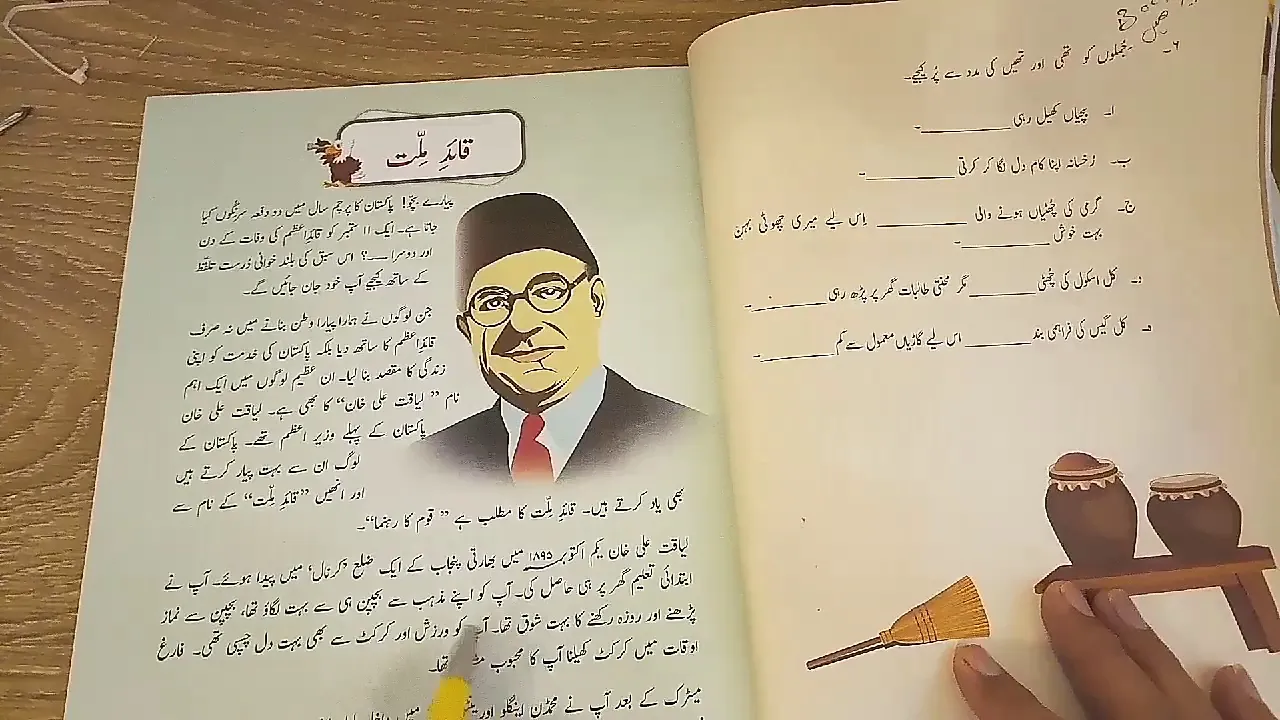 قائدِ ملّت
پیارے بچّو! پاکستان کا پرچم سال میں دو دفعہ سرنگوں کیا
جاتا ہے۔ ایک ۱۱ ستمبر کو قائدِاعظم کی وفات کے دن
اور دوسرا ــــ؟ اس سبق کی بلند خوانی دُرست تلفّظ
کے ساتھ کیجیے آپ خود جان جائیں گے۔
جن لوگوں نے ہمارا پیارا وطن بنانے میں نہ صرف
قائدِاعظم کا ساتھ دیا بلکہ پاکستان کی خدمت کو اپنی
زندگی کا مقصد بنا لیا۔ ان عظیم لوگوں میں ایک اہم
نام ”لیاقت علی خان“ کا بھی ہے۔ لیاقت علی خان
پاکستان کے پہلے وزیرِ اعظم تھے۔ پاکستان کے
لوگ ان سے بہت پیار کرتے ہیں
اور انھیں ”قائدِ ملّت“ کے نام سے
بھی یاد کرتے ہیں۔ قائدِ ملّت کا مطلب ہے ”قوم کا رہنما“۔
لیاقت علی خان یکم اکتوبر ۱۸۹۵ میں بھارتی پنجاب کے ایک ضلع ’کرنال‘ میں پیدا ہوئے۔ آپ نے
ابتدائی تعلیم گھر پر ہی حاصل کی۔ آپ کو اپنے مذہب سے بچپن ہی سے بہت لگاؤ تھا، بچپن سے نماز
پڑھنے اور روزہ رکھنے کا بہت شوق تھا۔ کو ورزش اور کرکٹ سے بھی بہت دل چسپی تھی۔ فارغ
اوقات میں کرکٹ کھیلنا آپ کا محبوب تھا۔
میٹرک کے بعد آپ نے محمڈن اینگلو میں
۶۔ جملوں کو تھی اور تھیں کی مدد سے پُر کیجیے۔
ا۔ بچیاں کھیل رہی ــــــــــ۔
ب۔ رُخسانہ اپنا کام دل لگا کر کرتی ــــــــــ۔
ج۔ گرمی کی چھٹیاں ہونے والی ــــــــــ اِس لیے میری چھوٹی بہن
بہت خوش ــــــــــ۔
د۔ کل اسکول کی چھٹی ــــــــــ مگر محنتی طالبات گھر پر پڑھ رہی ــــــــــ۔
ہ۔ کل گیس کی فراہمی بند ــــــــــ اس لیے گاڑیاں معمول سے کم ــــــــــ۔